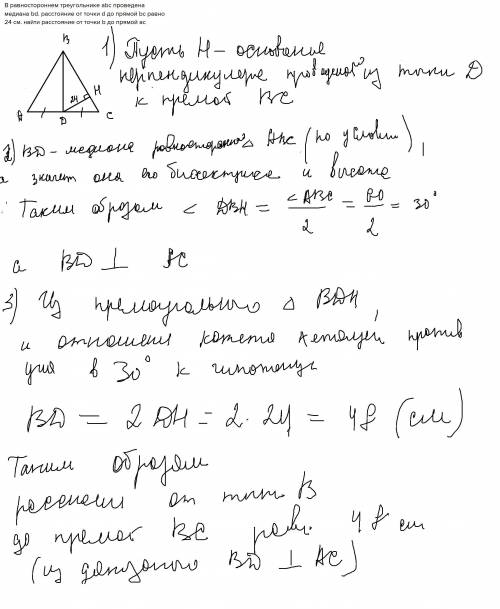 В равностороннем треугольнике abc проведена
медиана bd. расстояние от точки d до прямой bc равно
24 см. найти расстояние от точки b до прямой ac
B
24
H
A
D
C
1) Пусть H - основание
перпендикуляра проведенной из точки D
к прямой BC
2) BD - медиана равностороннего △ ABC (по условию),
а значит она его биссектриса и высота
Таким образом ∠ DBH = ∠ABC / 2 = 60 / 2 = 30°
а BD ⊥ AC
3) Из прямоугольного △ BDH,
и отношения катета лежащего против
угла в 30° к гипотенузе
BD = 2 DH = 2 · 24 = 48 (см)
Таким образом
расстояние от точки B
до прямой BC равно 48 см
(из доказанного BD ⊥ AC)